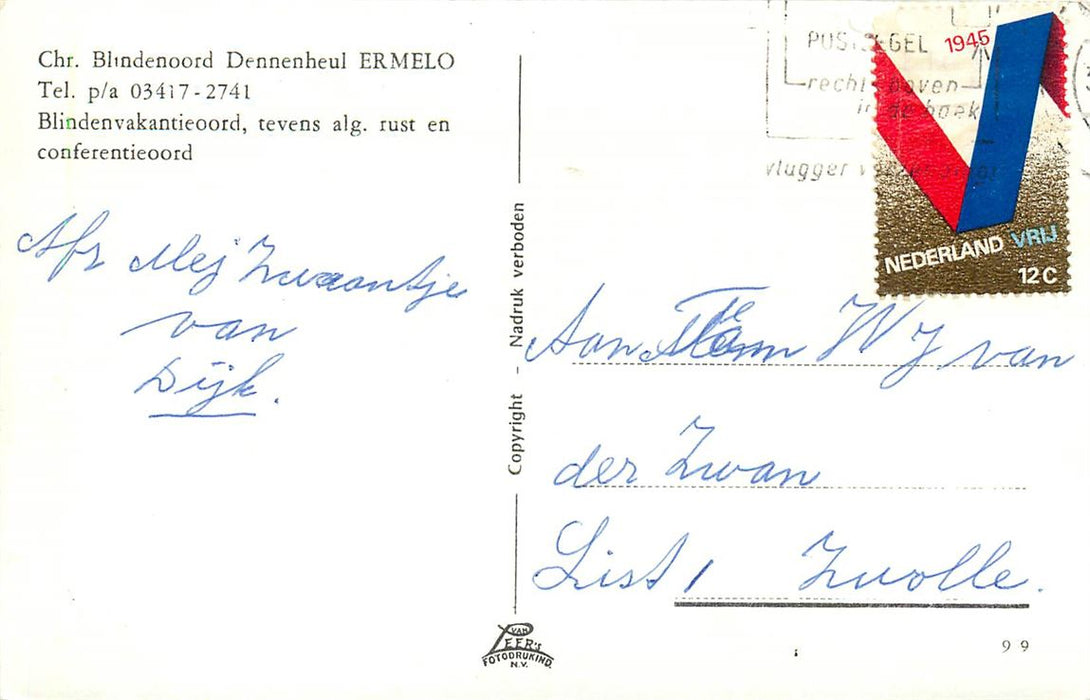 Chr. Blindenoord Dennenheul ERMELO
Tel. p/a 03417-2741
Blindenvakantieoord, tevens alg. rust en
conferentieoord
Afz Mej Zwaantje
van
Dijk.
Copyright - Nadruk verboden
VAN
LEER'S
FOTODRUKIND.
N.V.
POSTZEGEL
rechts boven
in de hoek
vlugger
1945
NEDERLAND VRIJ
12 C
Aan Fam W J van
der Zwan
List 1 Zwolle.
99